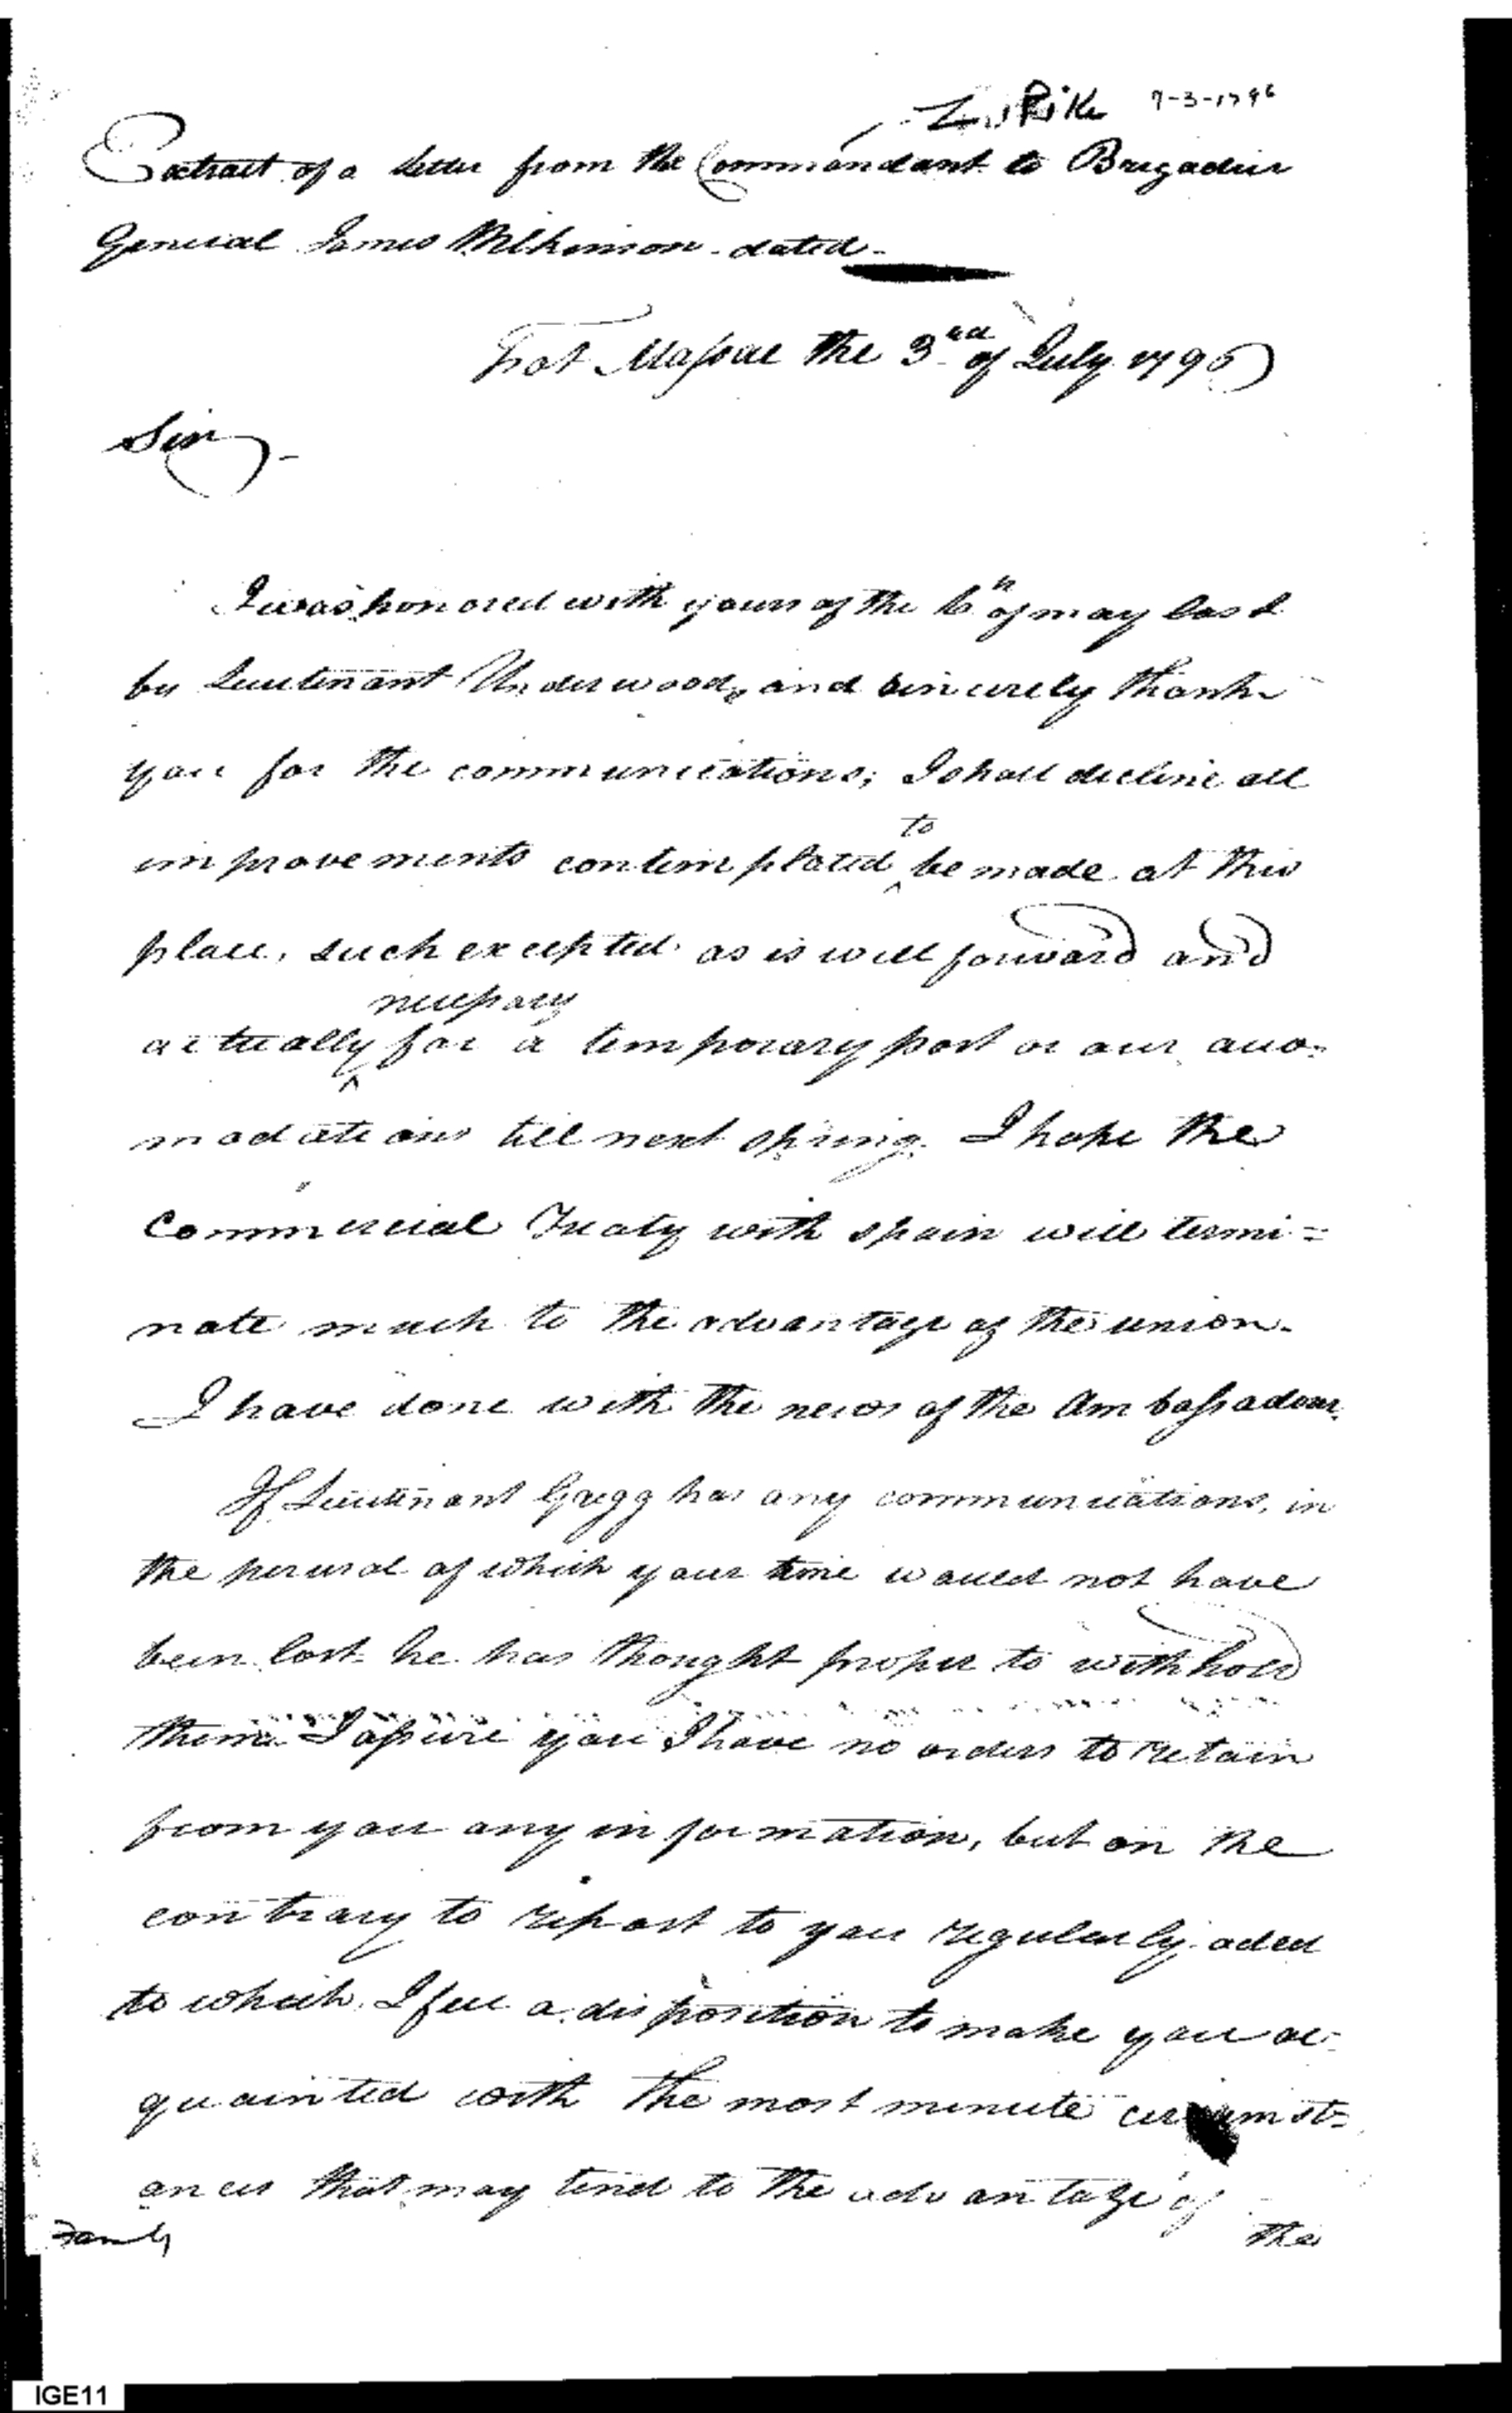 Z. Pike 7-3-1796
Extract of a Letter from the Commandant to Brigadier
General James Wilkinson - dated -
Frot Massac the 3rd of July 1796
Sir -
I was honored with yours of the 6th of may last
by Lieutenant Underwood, and sincerely thank
you for the communications; I shall decline all
improvements contemplated to be made at this
place, such excepted as is well forward and
actually necessary for a temporary post or our acco-
madations till next spring. I hope the
Commercial Treaty with spain will termi=
nate much to the advantage of the union.
I have done with the news of the Ambassadour.
If Lieutenant Gregg has any communications, in
the perusal of which your time would not have
been lost he has thought proper to withhold
them. I assure you I have no orders to retain
from you any information, but on the
contrary to report to you regularly, aded
to which, I feel a disposition to make you ac-
quainted with the most minute circumst=
ances that may tend to the advantage of
the
IGE11